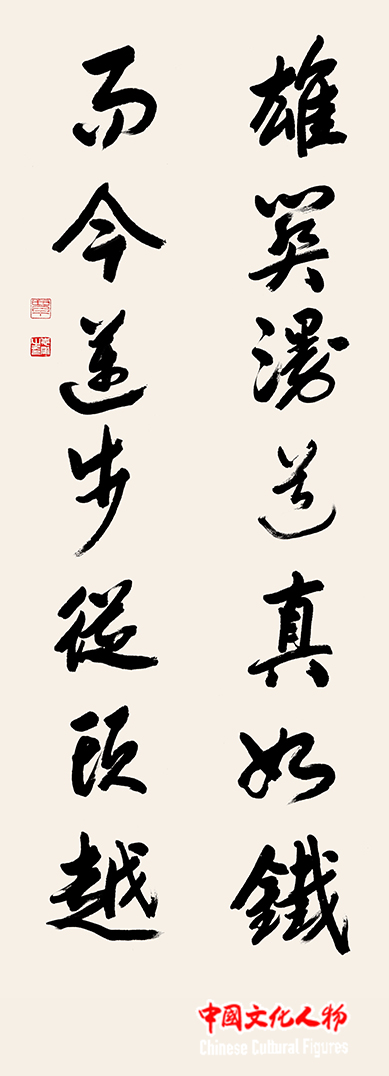 雄關漫道真如鐵
而今邁步從頭越
中國文化人物
Chinese Cultural Figures